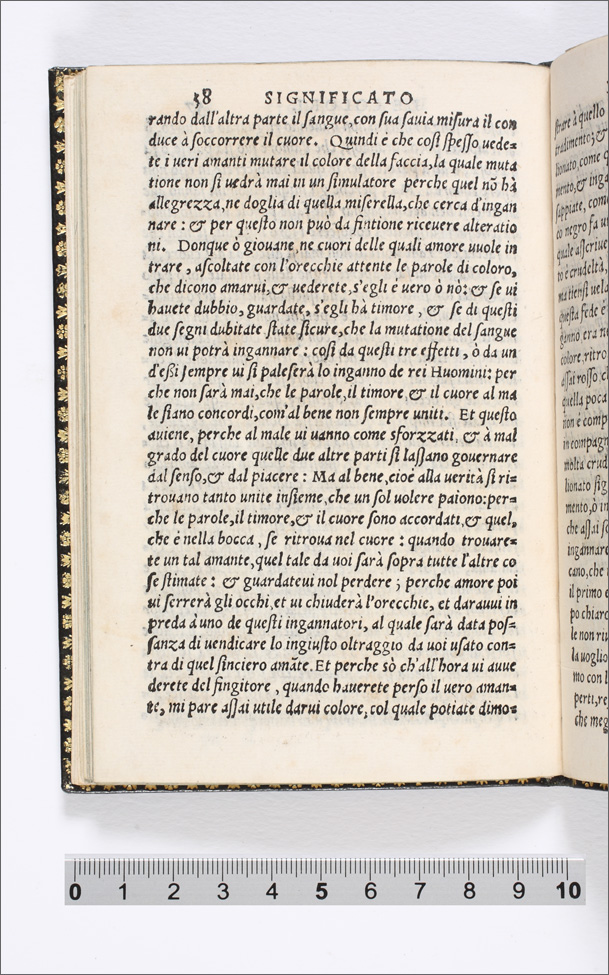 38 SIGNIFICATO
rando dall'altra parte il sangue, con sua sauia misura il con
duce à soccorrere il cuore. Quindi è che cosi spesso uede=
te i ueri amanti mutare il colore della faccia, la quale muta
tione non si uedrà mai in un simulatore perche quel nō hà
allegrezza, ne doglia di quella miserella, che cerca d'ingan
nare : & per questo non può da fintione riceuere alteratio
ni. Donque ò giouane, ne cuori delle quali amore uuole in
trare, ascoltate con l'orecchie attente le parole di coloro,
che dicono amarui, & uederete, s'egli è uero ò nò: & se ui
hauete dubbio, guardate, s'egli hà timore, & se di questi
due segni dubitate state sicure, che la mutatione del sangue
non ui potrà ingannare : cosi da questi tre effetti, ò da un
d'essi sempre ui si paleserà lo inganno de rei Huomini: per
che non sarà mai, che le parole, il timore, & il cuore al ma
le siano concordi, com'al bene non sempre uniti. Et questo
auiene, perche al male ui uanno come sforzzati, & à mal
grado del cuore quelle due altre parti si lassano gouernare
dal senso, & dal piacere : Ma al bene, cioè alla uerità si ri=
trouano tanto unite insieme, che un sol uolere paiono: per=
che le parole, il timore, & il cuore sono accordati, & quel,
che è nella bocca, se ritroua nel cuore : quando trouare=
te un tal amante, quel tale da uoi sarà sopra tutte l'altre co
se stimate : & guardateui nol perdere ; perche amore poi
ui serrerà gli occhi, et ui chiuderà l'orecchie, et darauui in
preda à uno de questi ingannatori, al quale sarà data pos=
sanza di uendicare lo ingiusto oltraggio da uoi usato con=
tra di quel sinciero amāte. Et perche sò ch'all'hora ui auue
derete del fingitore, quando hauerete perso il uero aman=
te, mi pare assai utile darui colore, col quale potiate dimo=
strare à quello
il primo e
po chiaro
che meg
0 1 2 3 4 5 6 7 8 9 10